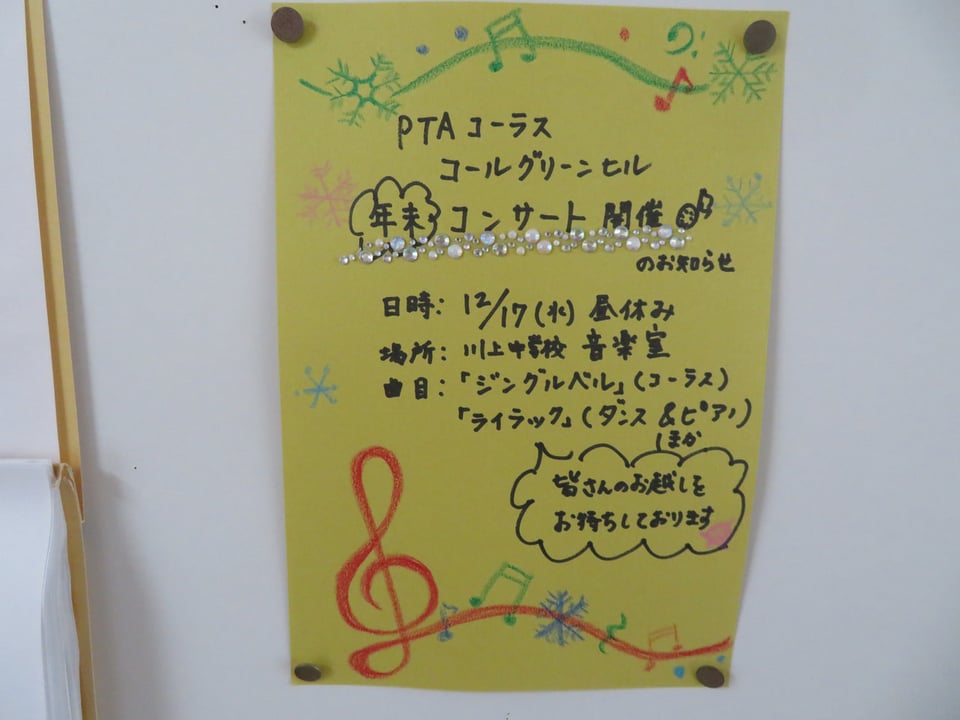 PTAコーラス
コールグリーンヒル
年末 コンサート 開催
のお知らせ
日時: 12/17(水) 昼休み
場所: 川上中学校 音楽室
曲目:「ジングルベル」(コーラス)
「ライラック」(ダンス &ピアノ)
ほか
皆さんのお越しを
お待ちしております